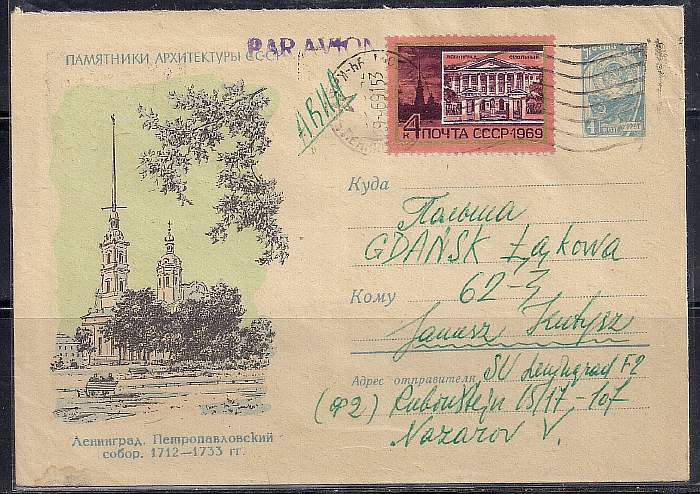 ПАМЯТНИКИ АРХИТЕКТУРЫ СССР
PAR AVION
АВИА
ЛЕНИНГРАД СМОЛЬНЫЙ
4 К ПОЧТА СССР·1969
1
Куда
Польша
GDAŃSK Łąkowa
Кому
62-3
Janusz
Адрес отправителя
SU Leningrad F2
(Ф2) Rubinstejn 15/17-107
Nazarov V.
Ленинград. Петропавловский
собор. 1712—1733 гг.